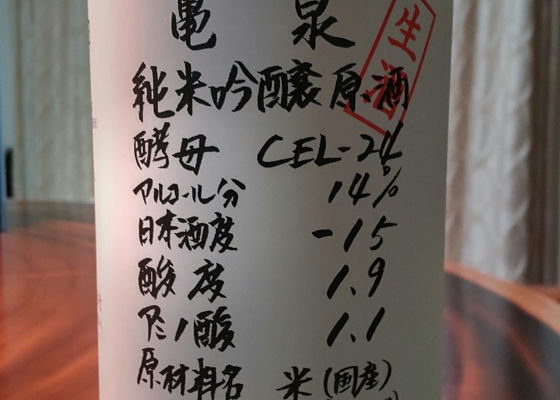 亀泉
生酒
純米吟醸原酒
酵母 CEL-24
アルコール分 14%
日本酒度 -15
酸度 1.9
アミノ酸 1.1
原材料名 米(国産)